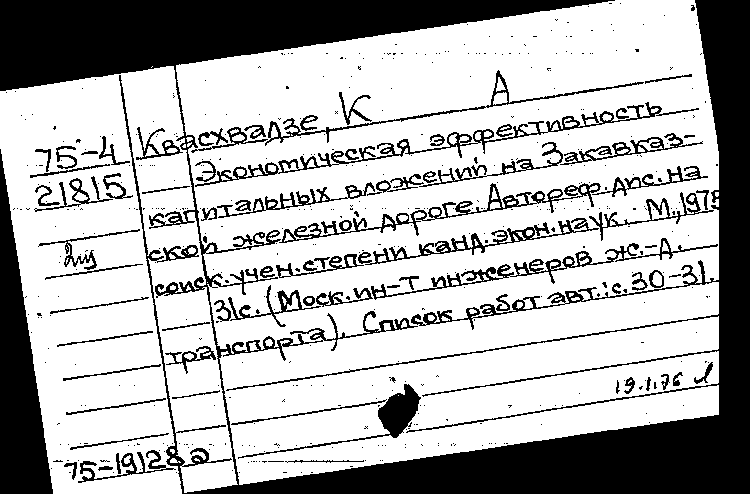 75-4
21815
2иу
Квасхвадзе, К А
Экономическая эффективность
капитальных вложений на Закавказ-
ской железной дороге. Автореф. дис. на
соиск. учен. степени канд. экон. наук. М., 1975
31с. (Моск. ин-т инженеров ж.-д.
транспорта). Список работ авт.: с. 30-31.
19.1.76
75-19128а